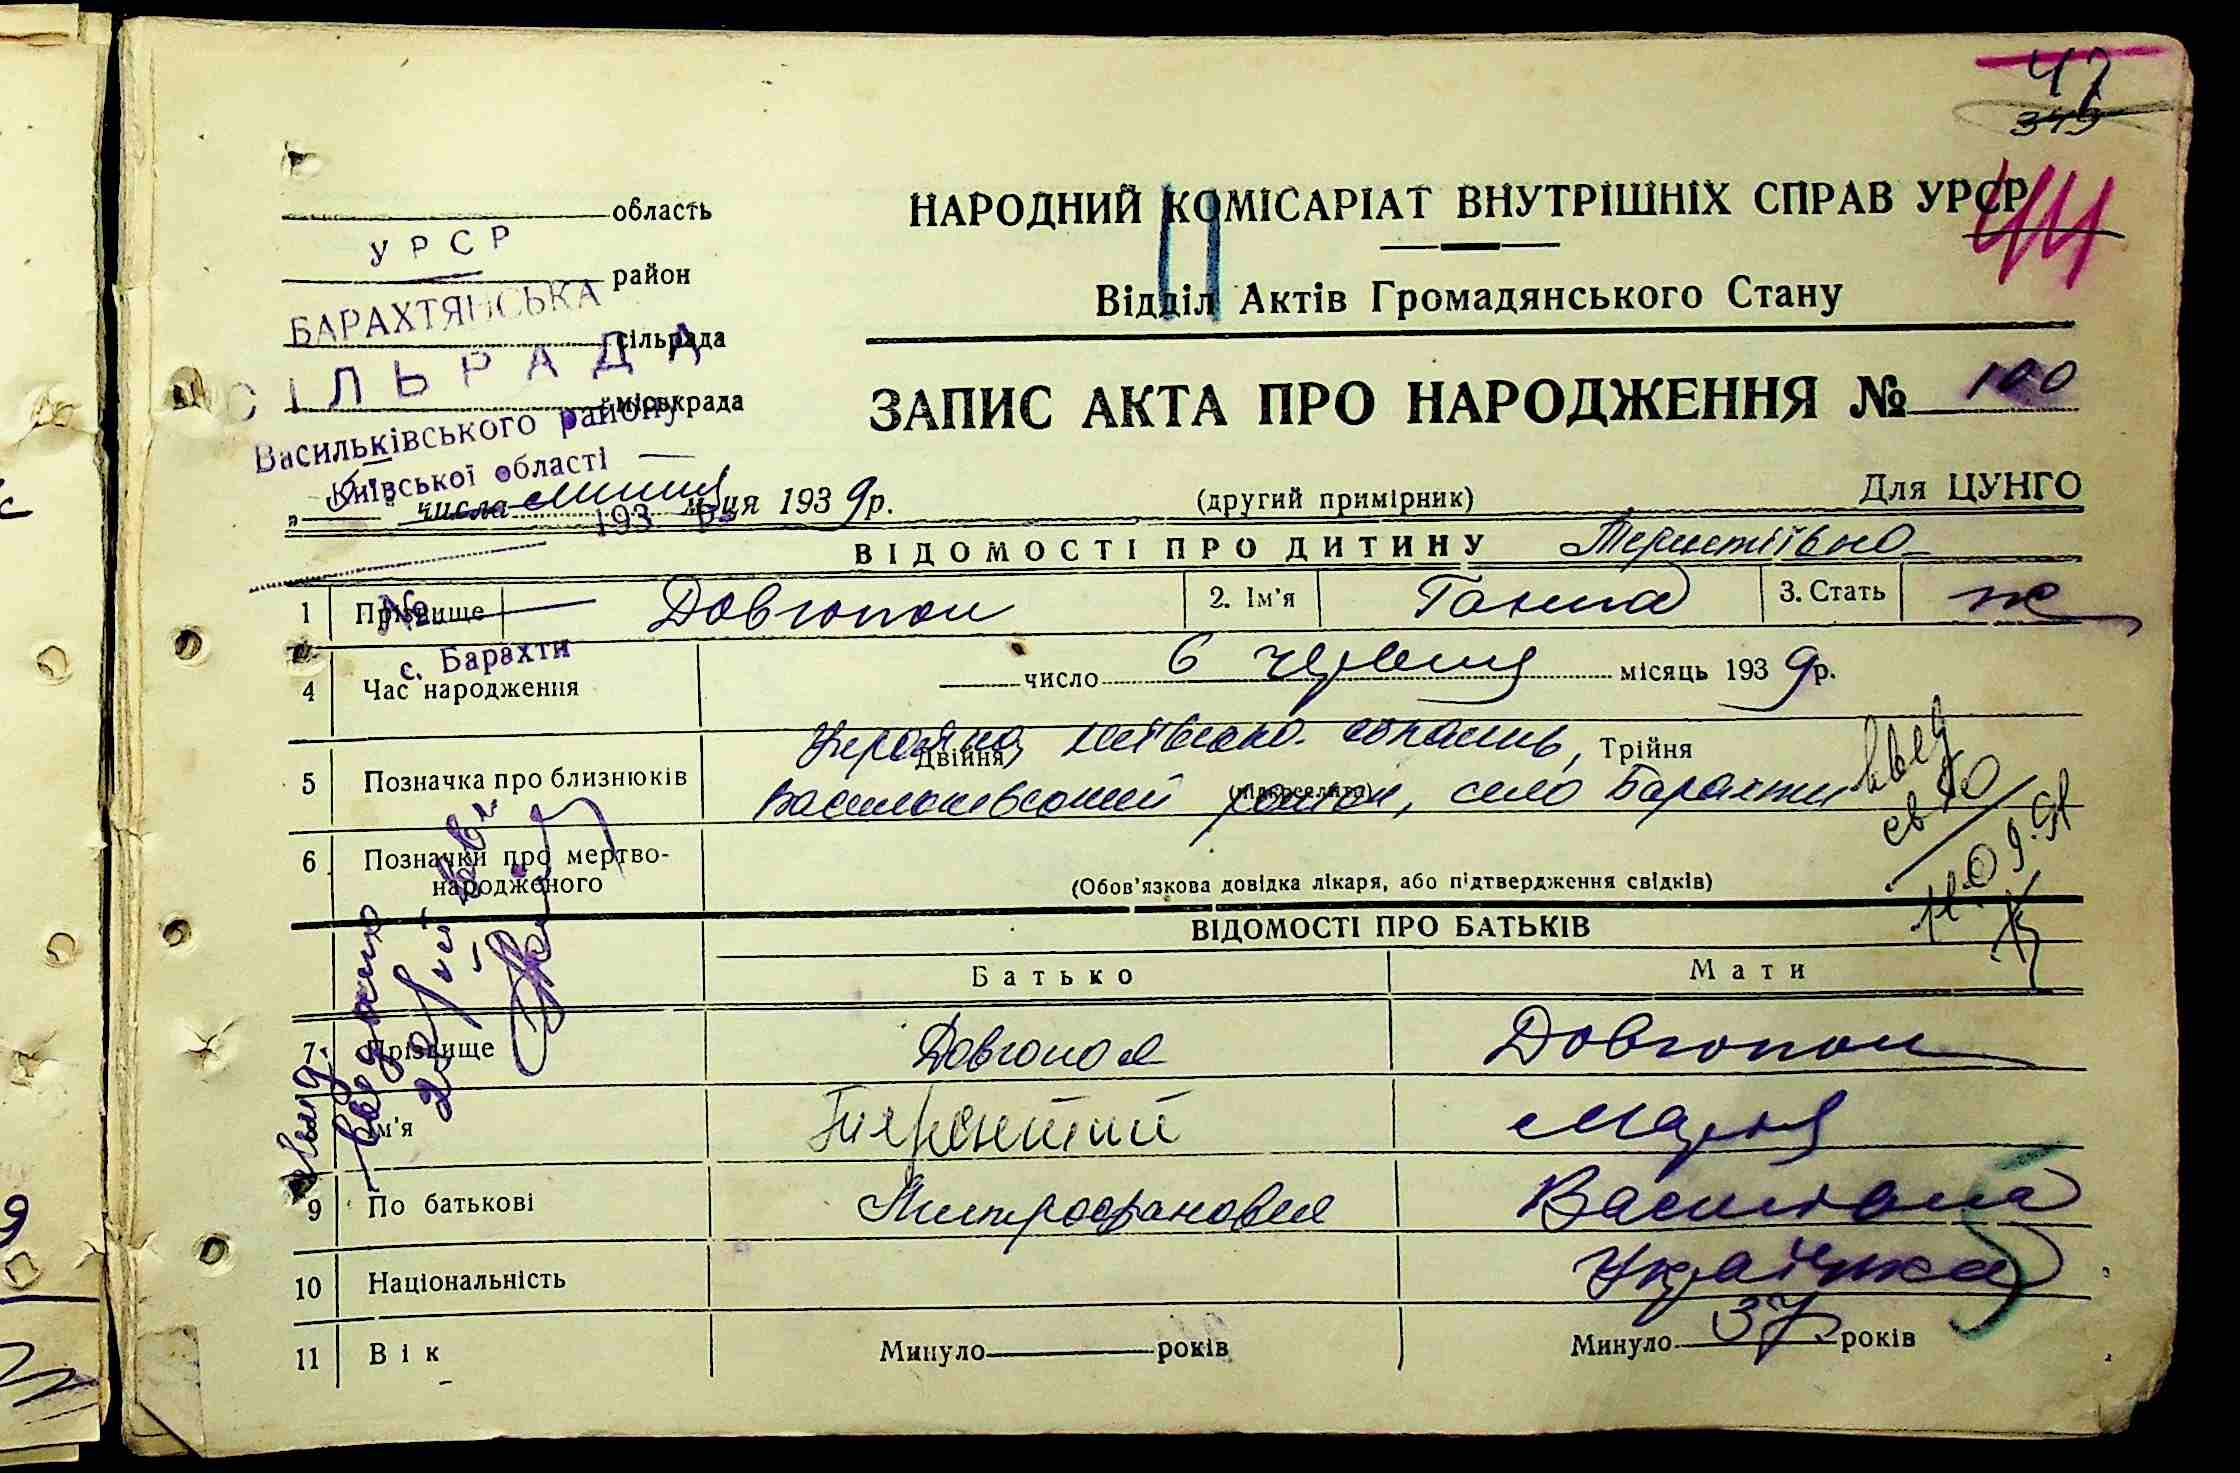 47
349
44
область
УРСР
район
БАРАХТЯНСЬКА
сільрада
СІЛЬРАДА
міськрада
Васильківського району
Київської області
НАРОДНИЙ КОМІСАРІАТ ВНУТРІШНІХ СПРАВ УРСР
Відділ Актів Громадянського Стану
ЗАПИС АКТА ПРО НАРОДЖЕННЯ № 100
числа липня м-ця 1939 р.
193 р.
(другий примірник)
Для ЦУНГО
ВІДОМОСТІ ПРО ДИТИНУ Терентіївна
1 Прізвище Довгопол 2. Ім'я Ганна 3. Стать ж
№
с. Барахти
4 Час народження число 6 червня місяць 1939 р.
Україна, Київська область,
5 Позначка про близнюків Двійня, Трійня
(підкреслити)
Васильківський район, село Барахти
6 Позначки про мертвонародженого
(Обов'язкова довідка лікаря, або підтвердження свідків)
ВІДОМОСТІ ПРО БАТЬКІВ
Батько Мати
7 Прізвище Довгопол Довгопол
Ім'я Терентий Марія
9 По батькові Митрофанович Василівна
10 Національність Українка
11 Вік Минуло років Минуло 37 років